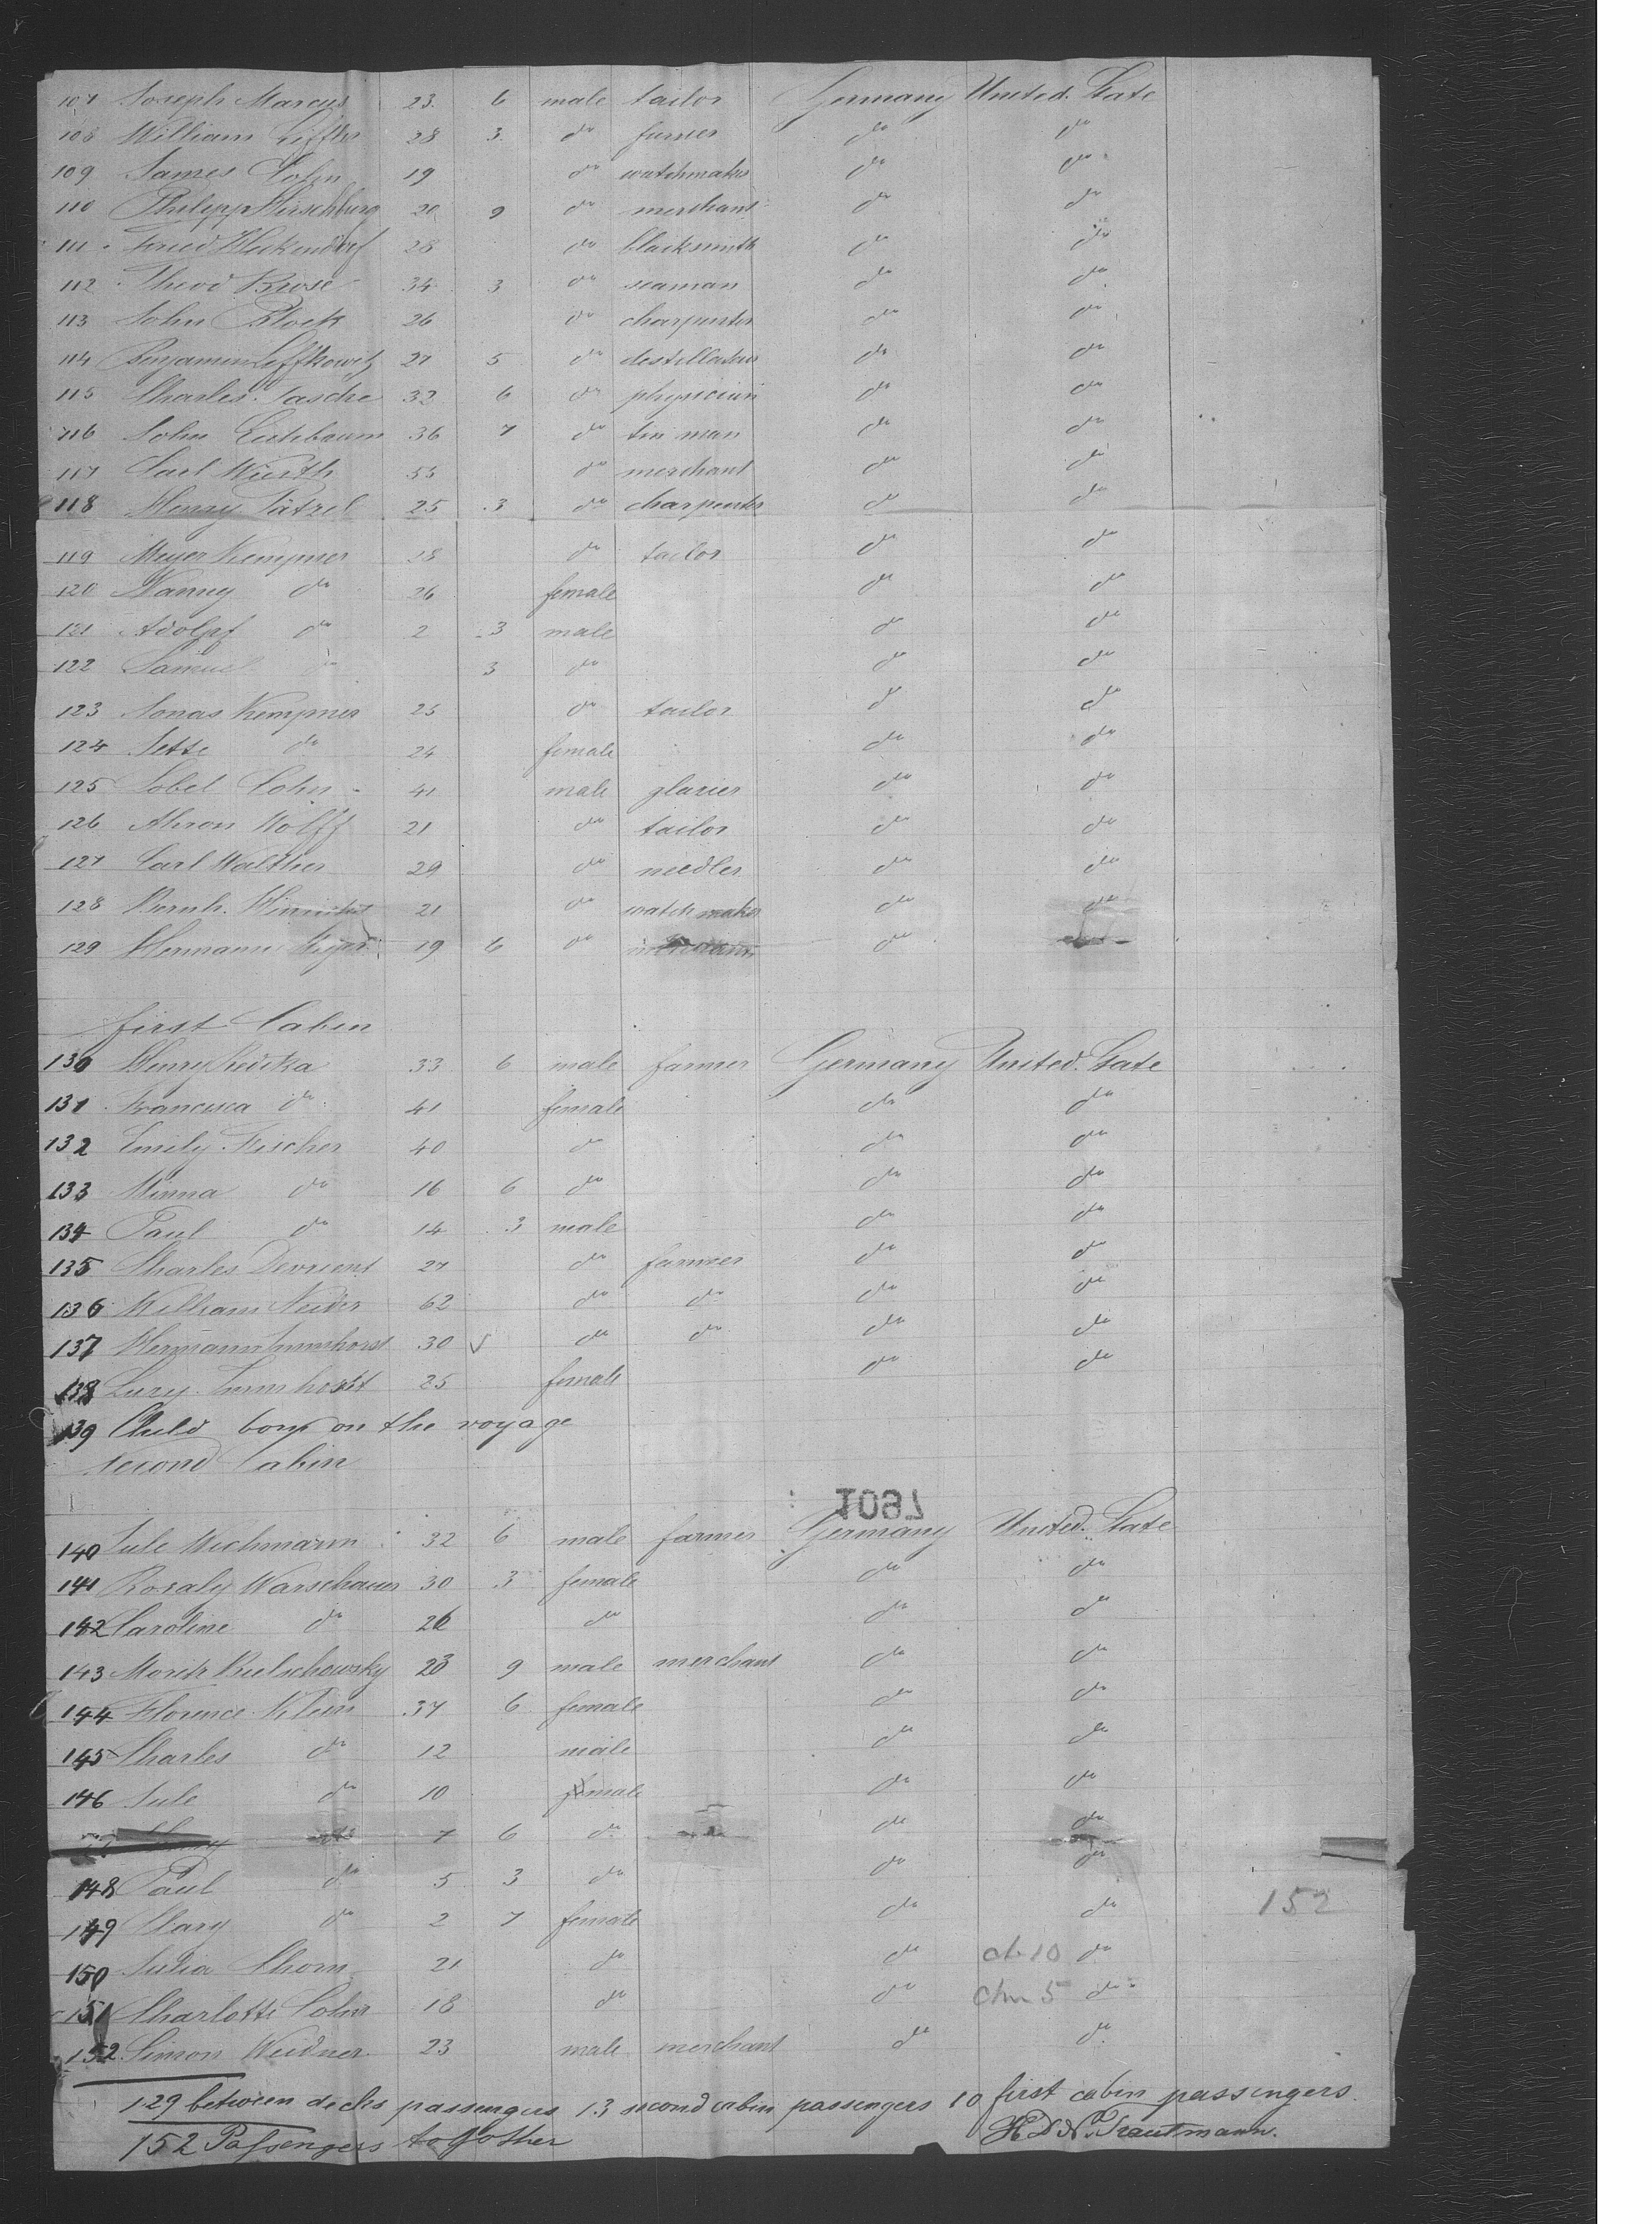 107 Joseph Marcus 23 6 male tailor Germany United. State
108 William 28 3 do do do
109 James Cohn 19 do watchmaker do do
110 Philipp Hirschburg 20 9 do merchant do do
111 Fried Heckendorf 28 do blacksmith do do
112 Theod Krose 34 3 do seaman do do
113 John Block 26 do charpenter do do
114 Benjamin Leffkowitz 27 5 do destillateur do do
115 Charles Tasche 32 6 do physicien do do
116 John 36 7 do tin man do do
117 Carl Wurth do merchant do do
118 Henry Tätzel 25 3 do charpenter do do
119 Meyer Kempner 28 do tailor do do
120 Nanny do 26 female do do
121 Adolpf do 2 3 male do do
122 Samuel do 3 do do do
123 Jonas Kempner 25 do tailor do do
124 Jette do 24 female do do
125 Lobel Cohn 41 male glazier do do
126 Ahron Wolff 21 do tailor do do
127 Carl Walther 29 do needler do do
128 Bernh. 21 do watchmaker do do
129 Hermann 19 6 do do do
first Cabin
130 Henry 33 6 male farmer Germany United. State
131 Francisca do 41 female do do
132 Emily Fischer 40 do do do
133 Minna do 16 6 do do do
134 Paul do 14 3 male do do
135 Charles Devrient 27 do farmer do do
136 William Neider 62 do do do do
137 Hermann 30 do do do do
138 Lucy 25 female do do
139 Child born on the voyage
second Cabin
1097
140 Jule Wichmann 32 6 male farmer Germany United. State
141 Rosaly Warschauer 30 3 female do do
142 Caroline do 26 do do do
143 Moritz 23 9 male merchant do do
144 Florence Klein 37 6 female do do
145 Charles do 12 male do do
146 Jule do 10 male do do
do 7 6 do do do
148 Paul do 5 3 do do do
149 Mary do 2 7 female do do 152
150 Julia Thom 21 do do ch 10 do
151 Charlotte Cohn 18 do do chn 5 do
152 Simon Weidner 23 male merchant do do
129 between decks passengers 13 second cabin passengers 10 first cabin passengers.
152 Passengers together Trautmann.